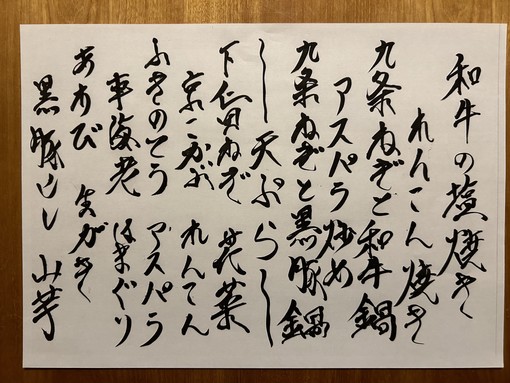 和牛の塩焼き
れんこん焼き
九条ねぎと和牛鍋
アスパラ炒め
九条ねぎと黒豚鍋
〜天ぷら〜
下仁田ねぎ 花菜
京こかぶ れんこん
ふきのとう アスパラ
車海老 はまぐり
あわび 生がき
黒豚ヒレ 山芋